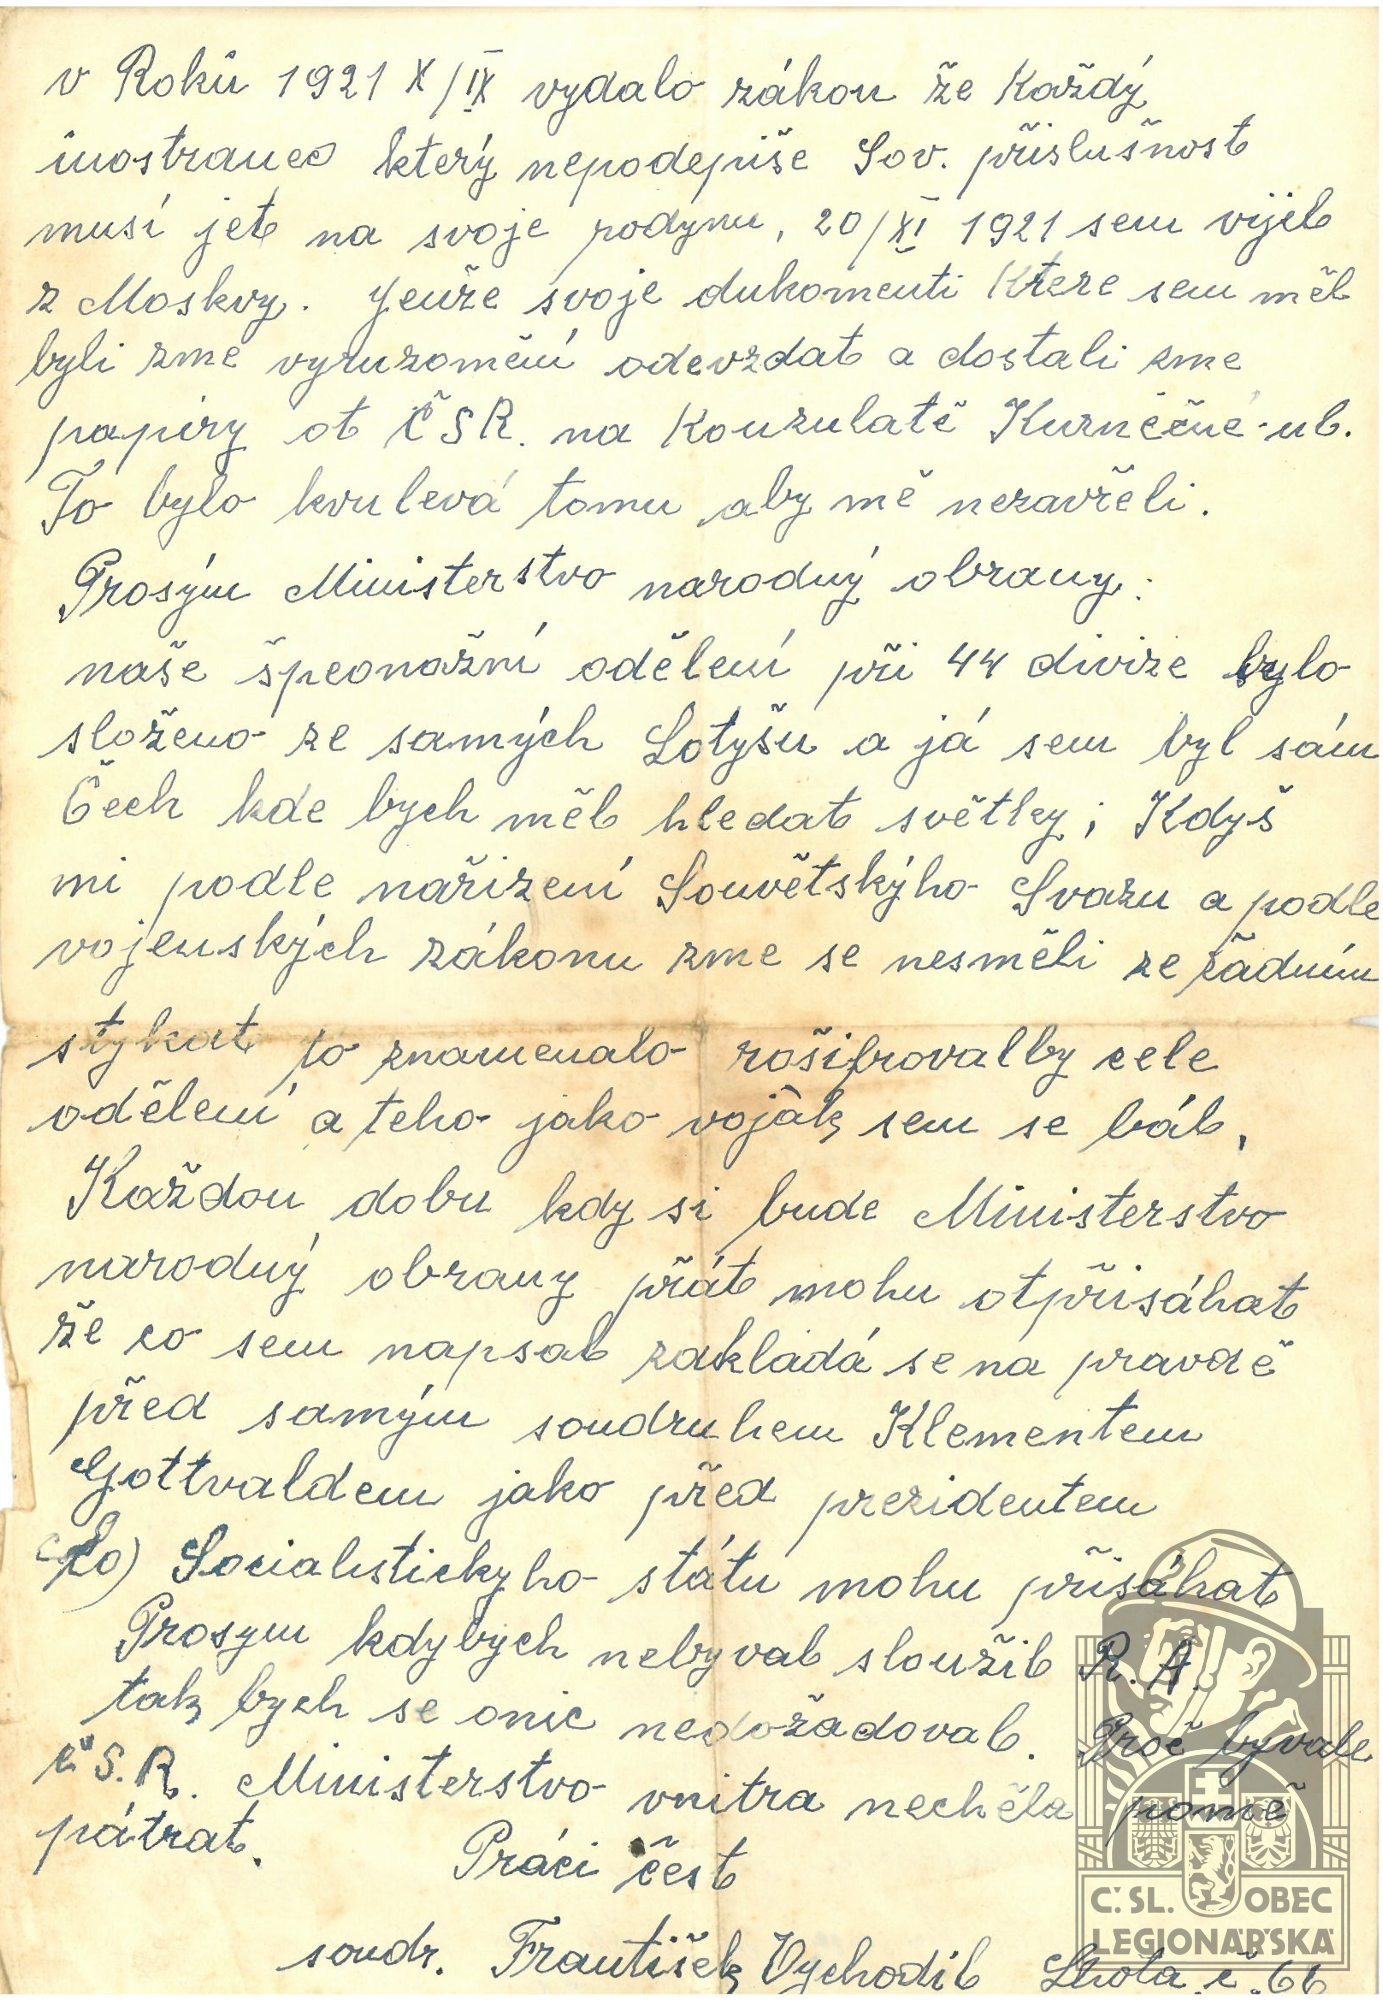 v Roků 1921 X/IX vydalo zákon že Každý
inostranec který nepodepiše Sov. přislušnost
musí jet na svoje rodynu, 20/XI 1921 sem vijel
z Moskvy. Jenže svoje dukomenti Ktere sem měl
byli zme vyruromění odevzdat a dostali zme
papíry ot ČSR. na Konzulatě Kurnéčné-ul.
To bylo kvulevá tomu aby mě nezavřeli.
Prosým Ministerstvo narodný obrany:
naše špeonažní odělení při 44 divize bylo
složeno ze samých Lotyšu a já sem byl sám
Čech kde bych měl hledat světky; Kdyš
mi podle nařizení Souvětskýho Svazu a podle
vojenských zákonu zme se nesměli ze žádním
stykat to znamenalo rošifrovalby cele
odělení a teho jako voják sem se bál,
Každou dobu kdy si bude Ministerstvo
narodný obrany přát mohu otpřisáhat
že co sem napsal zakladá se na pravdě
před samým soudruhem Klementem
Gottvaldem jako před prezidentem
Socialistickyho státu mohu přisáhat
Prosym kdybych nebyval sloužil R.A.
tak bych se onic nedožadoval. Proč byvale
Č.S.R. Ministerstvo vnitra nechěla pomě
pátrat.
Práci čest
soudr. František Vychodil Lhota č. 66
Č:SL. OBEC
LEGIONÁŘSKÁ